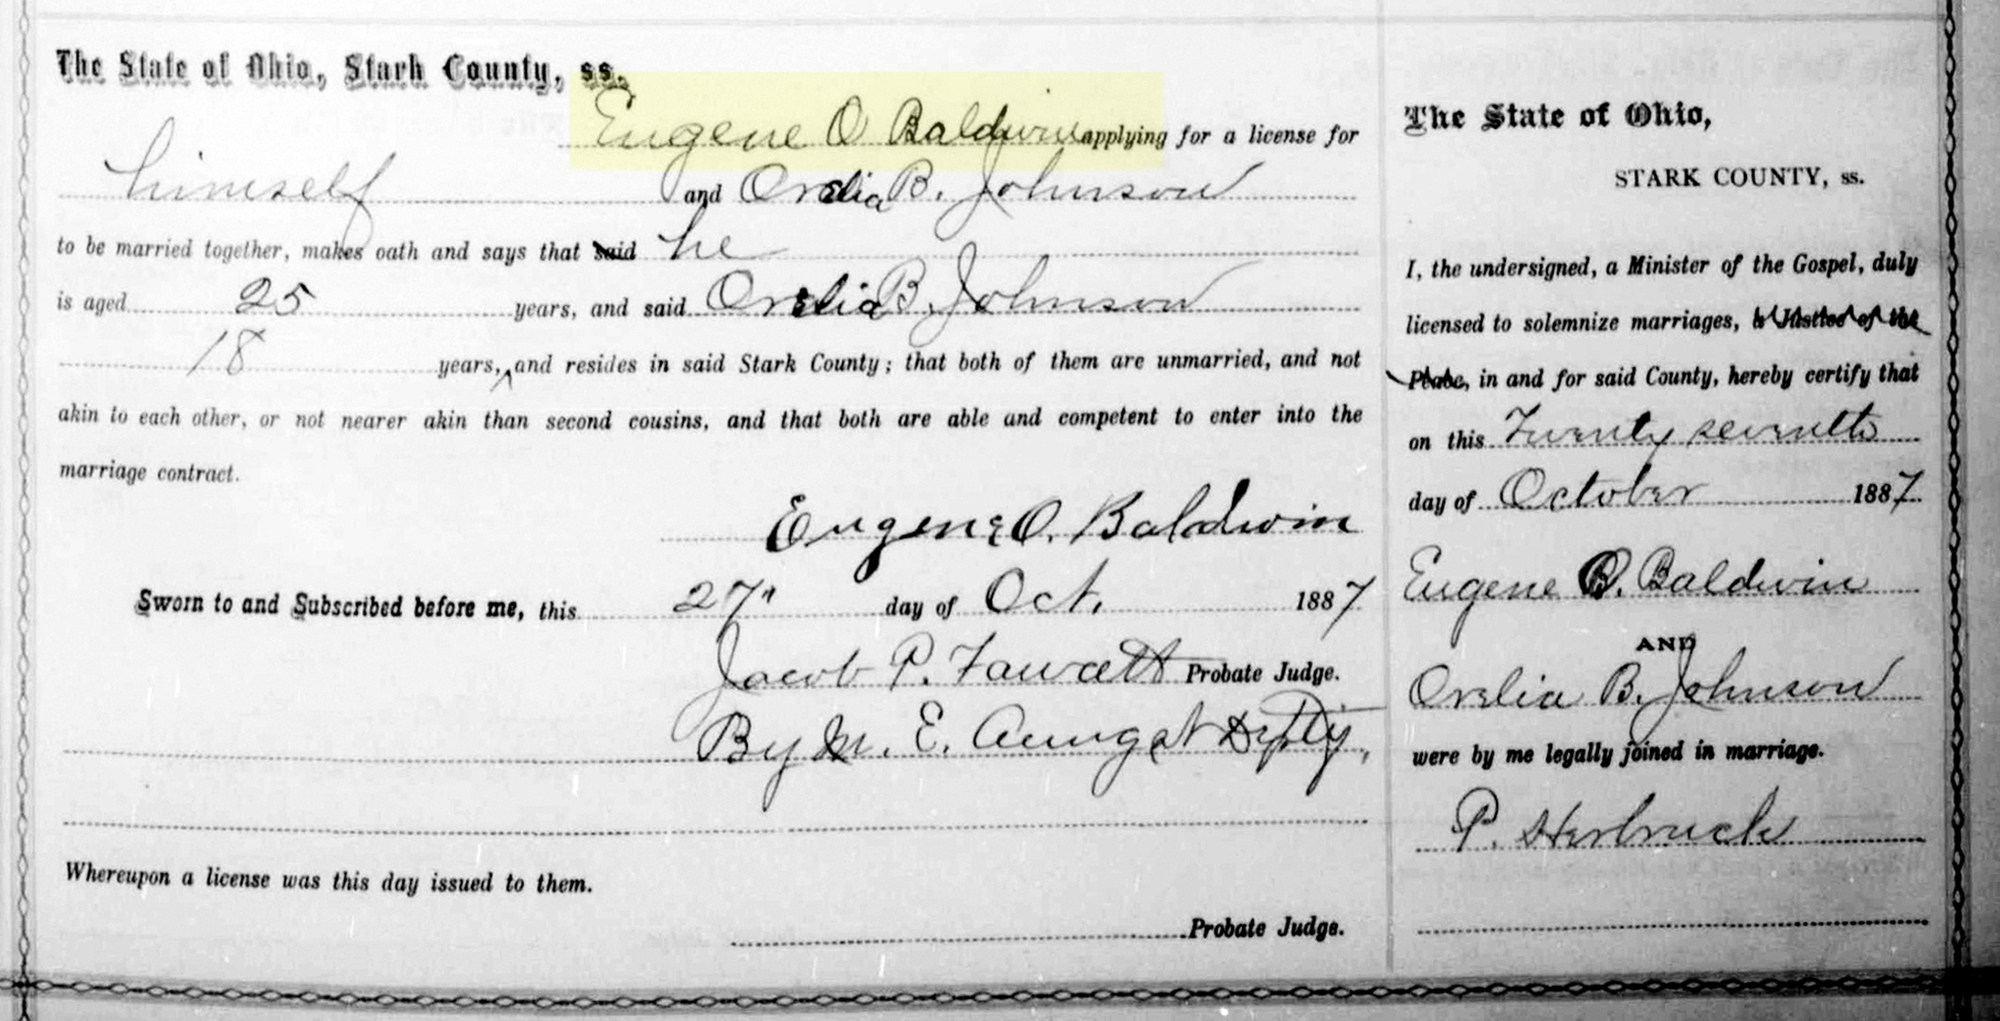 The State of Ohio, Stark County, ss.
Eugene O Baldwin applying for a license for
himself and Orelia B. Johnson
to be married together, makes oath and says that said he
is aged 25 years, and said Orelia B. Johnson
18 years, and resides in said Stark County; that both of them are unmarried, and not
akin to each other, or not nearer akin than second cousins, and that both are able and competent to enter into the
marriage contract.
Eugene O. Baldwin
Sworn to and Subscribed before me, this 27" day of Oct. 1887
Jacob P. Fawcett Probate Judge.
By M. E. Aungst Depty,
Whereupon a license was this day issued to them.
Probate Judge.
The State of Ohio,
STARK COUNTY, ss.
I, the undersigned, a Minister of the Gospel, duly
licensed to solemnize marriages, a Justice of the
Peace, in and for said County, hereby certify that
on this Twenty seventh
day of October 1887
Eugene O. Baldwin
AND
Orelia B. Johnson
were by me legally joined in marriage.
P. Herbruck